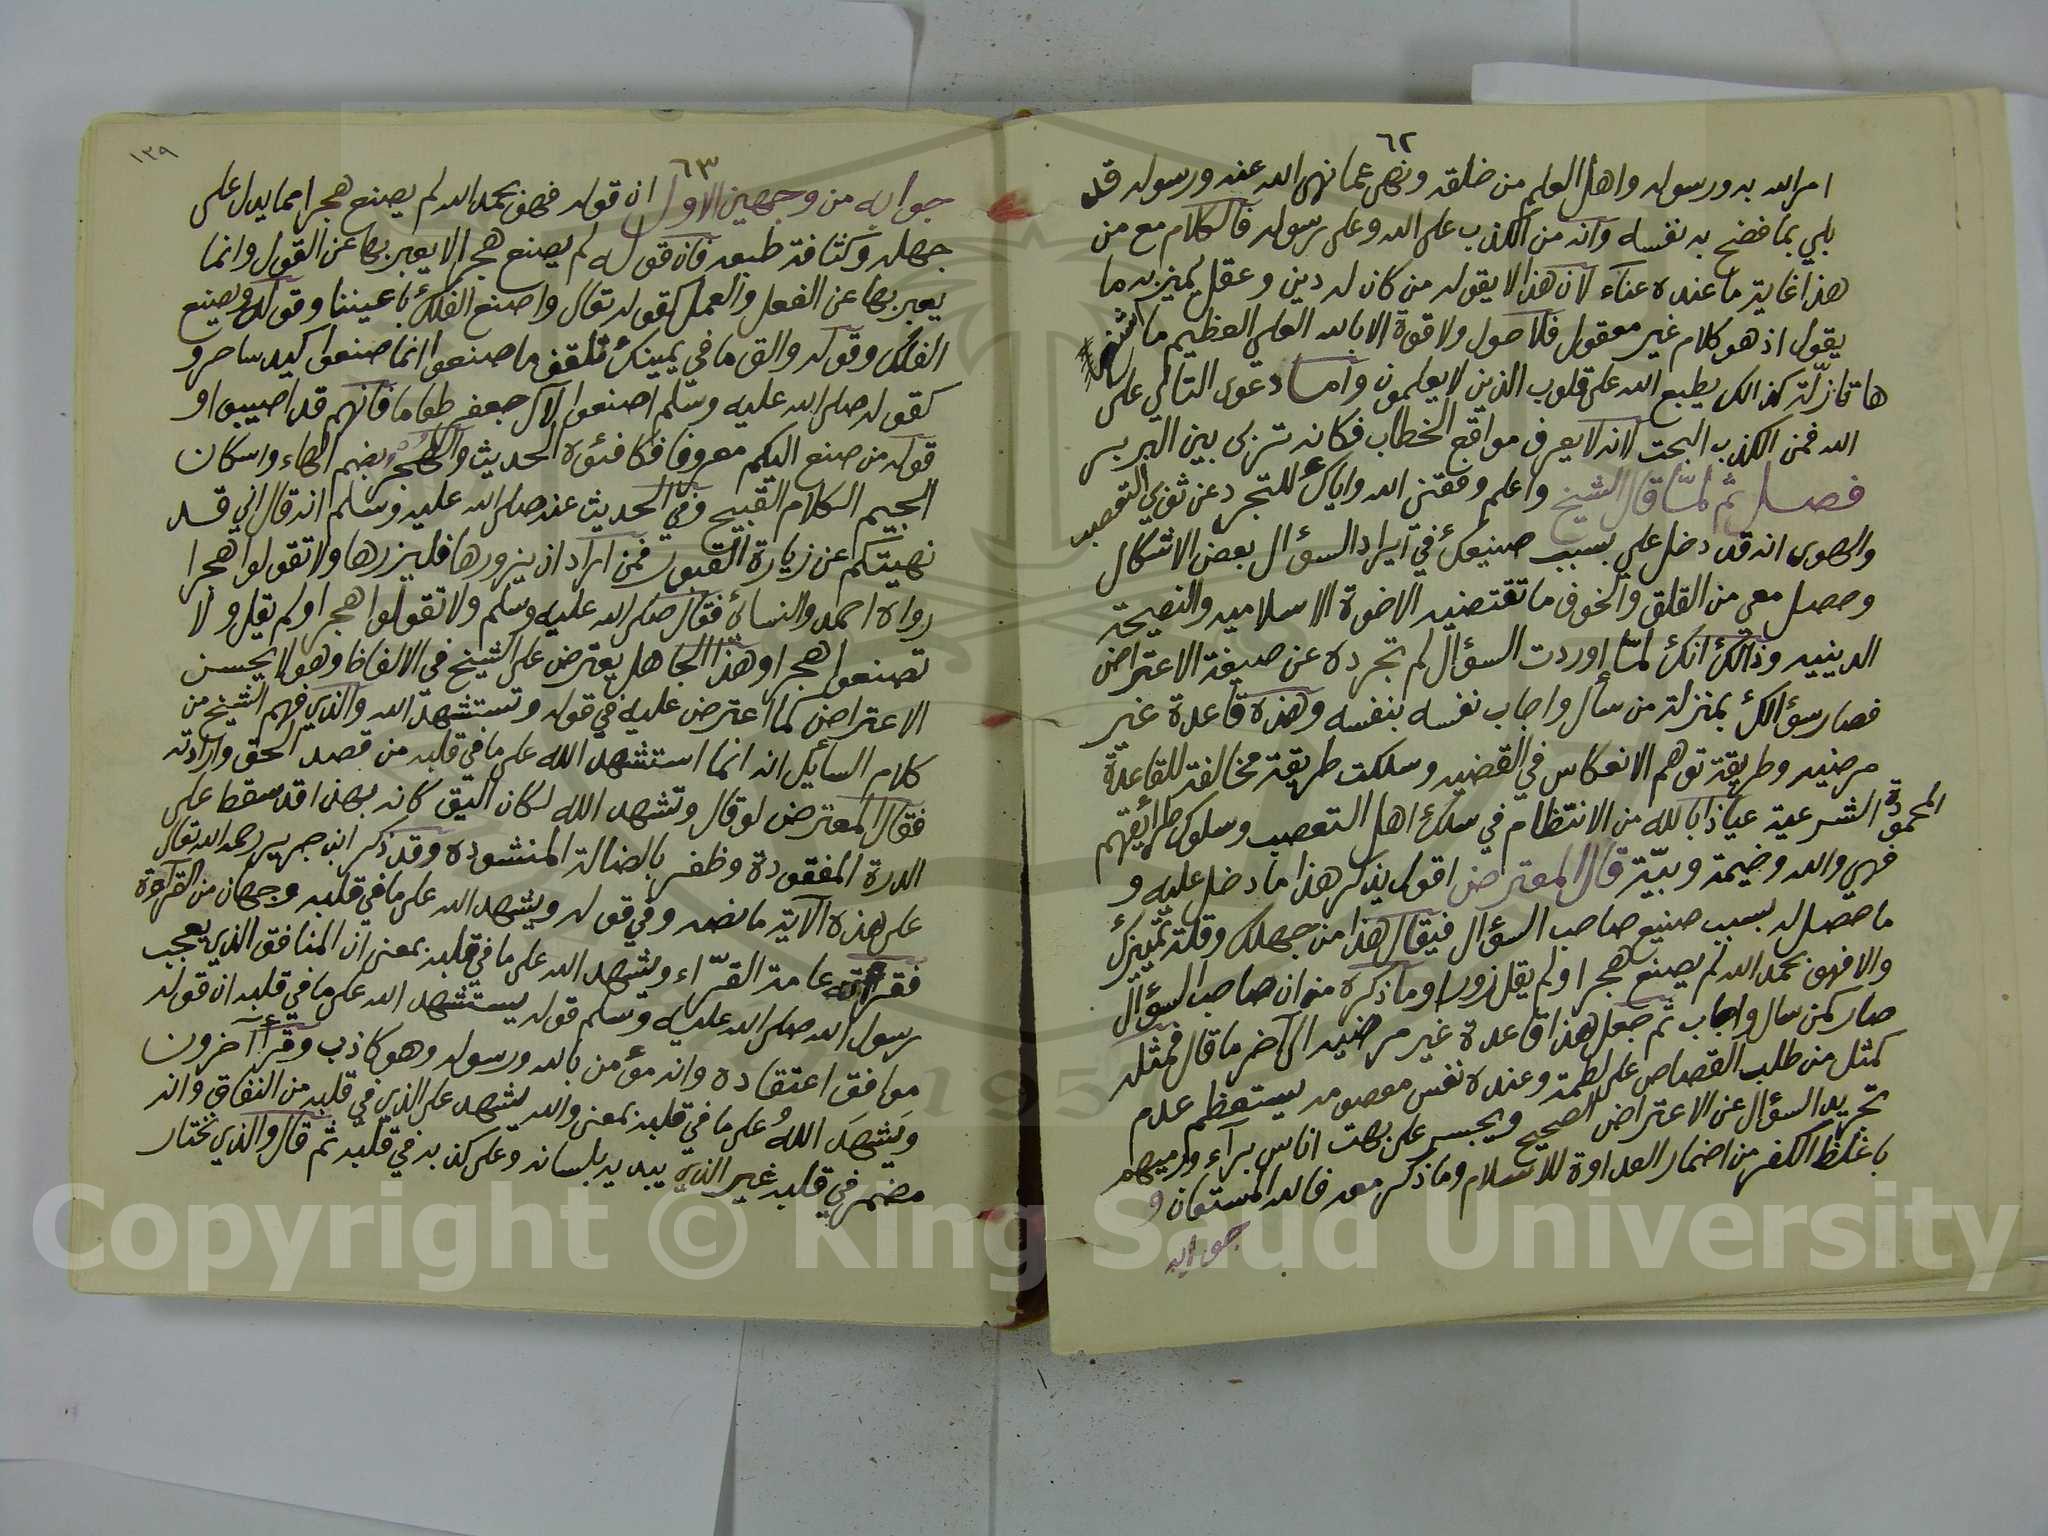 ٦٢
امر الله به ورسوله واهل العلم من خلقه ونهى عما نهى الله عنه ورسوله قد
بلي بما فضح به نفسه وانه من الكذب على الله وعلى رسوله فالكلام مع من
هذا غاية ما عنده عناء لان هذا لا يقوله من كان له دين وعقل يميز به ما
يقول اذ هو كلام غير معقول فلا حول ولا قوة الا بالله العلي العظيم ما
ها نازلة كذالك يطبع الله على قلوب الذين لا يعلمون واما دعوى التالي على
الله فمن الكذب البحت لانه لا يعرف مواقع الخطاب فكانه تربى بين البربر
فصل ثم لما قال الشيخ واعلم وفقني الله واياك للتجرد عن ثوبي التعصب
والهوى انه قد دخل علي بسبب صنيعك في ايراد السؤال بعض الاشكال
وحصل معي من القلق والخوف ما تقتضيه الاخوة الاسلاميه والنصيحة
الدينيه وذالك انك لما اوردت السؤال لم تجرده عن صيغة الاعتراض
فصار سؤالك بمنزلة من سأل واجاب نفسه بنفسه وهذه قاعدة غير
مرضيه وطريقة توهم الانعكاس في القضيه وسلكت طريقة مخالفة للقاعدة
المحمودة الشرعية عياذا بالله من الانتظام في سلك اهل التعصب وسلوك طرائقهم
فهي والله وخيمة وبيّة قال المعترض اقول يذكر هذا ما دخل عليه و
ما حصل له بسبب صنيع صاحب السؤال فيقال هذا من جهلك وقلة تمييزك
والا فهو بحمد الله لم يصنع هجرا ولم يقل زورا وما ذكره من ان صاحب السؤال
صار كمن سال واجاب ثم جعل هذا قاعدة غير مرضيه الى آخر ما قال فمثله
كمثل من طلب القصاص على لطمة وعنده نفس معصومه يستعظم عدم
تجريد السؤال عن الاعتراض الصحيح ويجسر على بهت اناس برآء ورميهم
باغلظ الكفر من اضمار العداوة للاسلام وما ذكر معه فالله المستعان و
جوابه
٦٣
١٣٩
جوابه من وجهين الاول ان قوله فهو بحمد الله لم يصنع هجرا مما يدل على
جهله وكثافة طبعه فان قوله لم يصنع هجرا لا يعبر بها عن القول وانما
يعبر بها عن الفعل والعمل كقوله تعالى واصنع الفلك باعيننا وقوله ويصنع
الفلك وقوله والق ما في يمينك تلقف ما صنعوا انما صنعوا كيد ساحر و
كقوله صلى الله عليه وسلم اصنعوا لآل جعفر طعاما فانهم قد اصيبوا و
قوله من صنع اليكم معروفا فكافئوه الحديث والهجر بضم الهاء واسكان
الجيم الكلام القبيح وفي الحديث عنه صلى الله عليه وسلم انه قال اني قد
نهيتكم عن زيارة القبور فمن اراد ان يزورها فليزرها ولا تقولوا هجرا
رواه احمد والنسائ فقال صلى الله عليه وسلم ولا تقولوا هجرا ولم يقل ولا
تصنعوا هجرا وهذا الجاهل يعترض على الشيخ في الالفاظ وهو لا يحسن
الاعتراض كما اعترض عليه في قوله وتستشهد الله والذي فهم الشيخ من
كلام السائيل انه انما استشهد الله على ما في قلبه من قصد الحق وارادته
فقال المعترض لو قال وتشهد الله لكان اليق كانه بهذا قد سقط على
الدرة المفقودة وظفر بالضالة المنشوده وقد ذكر ابن جرير رحمه الله تعالى
على هذه الآية ما نصه وفي قوله ويشهد الله على ما في قلبه وجهان من القرآءة
فقرأته عامة القرّاء ويشهد الله على ما في قلبه بمعنى ان المنافق الذي يعجب
رسول الله صلى الله عليه وسلم قوله يستشهد الله على ما في قلبه ان قوله
موافق اعتقاده وانه مؤمن بالله ورسوله وهو كاذب وقرأ آخرون
وَيَشهدَ اللهُ على ما في قلبه بمعنى والله يشهد على الذي في قلبه من النفاق وانه
مضمر في قلبه غير الذي يبديه بلسانه وعلى كذبه في قلبه ثم قال والذي نختار
Copyright © King Saud University
1957